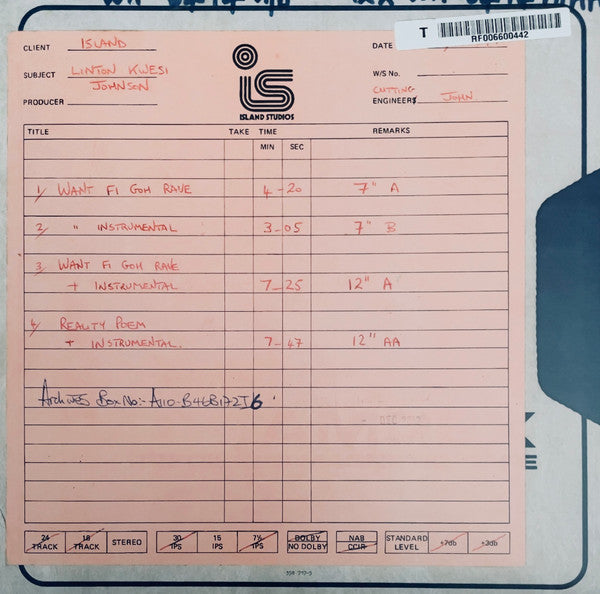 T RF006600442
CLIENT ISLAND
DATE
SUBJECT LINTON KWESI JOHNSON
W/S No.
PRODUCER
CUTTING
ENGINEERS JOHN
ISLAND STUDIOS
TITLE TAKE TIME REMARKS
MIN SEC
1/ WANT FI GOH RAVE 4-20 7" A
2/ " INSTRUMENTAL 3-05 7" B
3/ WANT FI GOH RAVE
+ INSTRUMENTAL 7-25 12" A
4/ REALITY POEM
+ INSTRUMENTAL. 7-47 12" AA
Archives Box No:- A110-B46B172I6
24 TRACK 16 TRACK STEREO 30 IPS 15 IPS 7½ IPS DOLBY NO DOLBY NAB CCIR STANDARD LEVEL +7db +3db